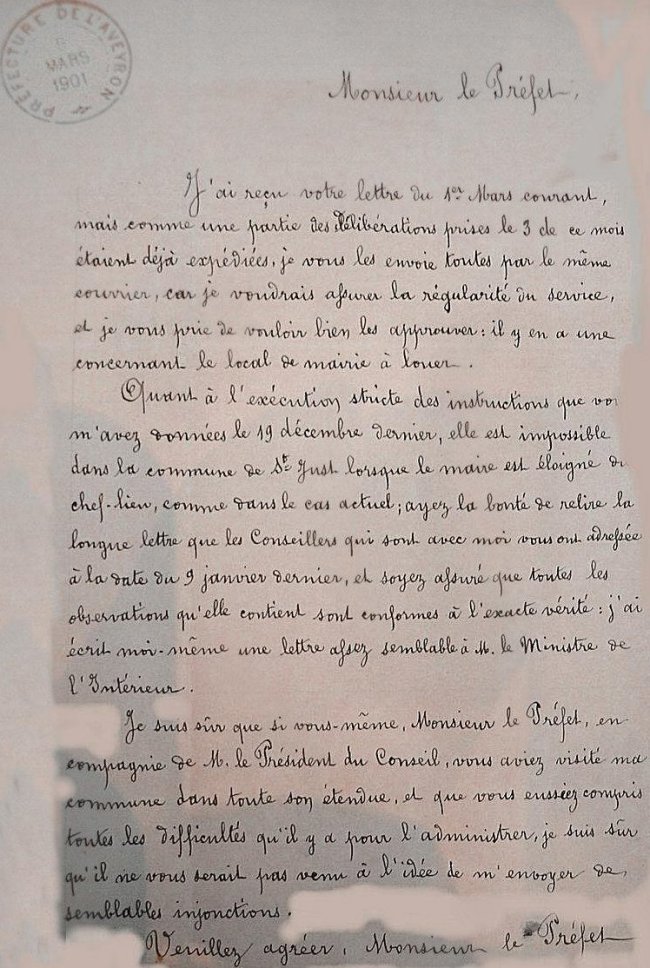 PRÉFECTURE DE L'AVEYRON
MARS
1901
Monsieur le Préfet,
J'ai reçu votre lettre du 1er Mars courant,
mais comme une partie des délibérations prises le 3 de ce mois
étaient déjà expédiées, je vous les envoie toutes par le même
courrier, car je voudrais assurer la régularité du service,
et je vous prie de vouloir bien les approuver : il y en a une
concernant le local de mairie à louer.
Quant à l'exécution stricte des instructions que vo
m'avez données le 19 décembre dernier, elle est impossible
dans la commune de St Just lorsque le maire est éloigné du
chef-lieu, comme dans le cas actuel ; ayez la bonté de relire la
longue lettre que les Conseillers qui sont avec moi vous ont adressée
à la date du 9 janvier dernier, et soyez assuré que toutes les
observations qu'elle contient sont conformes à l'exacte vérité : j'ai
écrit moi-même une lettre assez semblable à M. le Ministre de
l'Intérieur.
Je suis sûr que si vous-même, Monsieur le Préfet, en
compagnie de M. le Président du Conseil, vous aviez visité ma
commune dans toute son étendue, et que vous eussiez compris
toutes les difficultés qu'il y a pour l'administrer, je suis sûr
qu'il ne vous serait pas venu à l'idée de m'envoyer de
semblables injonctions.
Veuillez agréer, Monsieur le Préfet